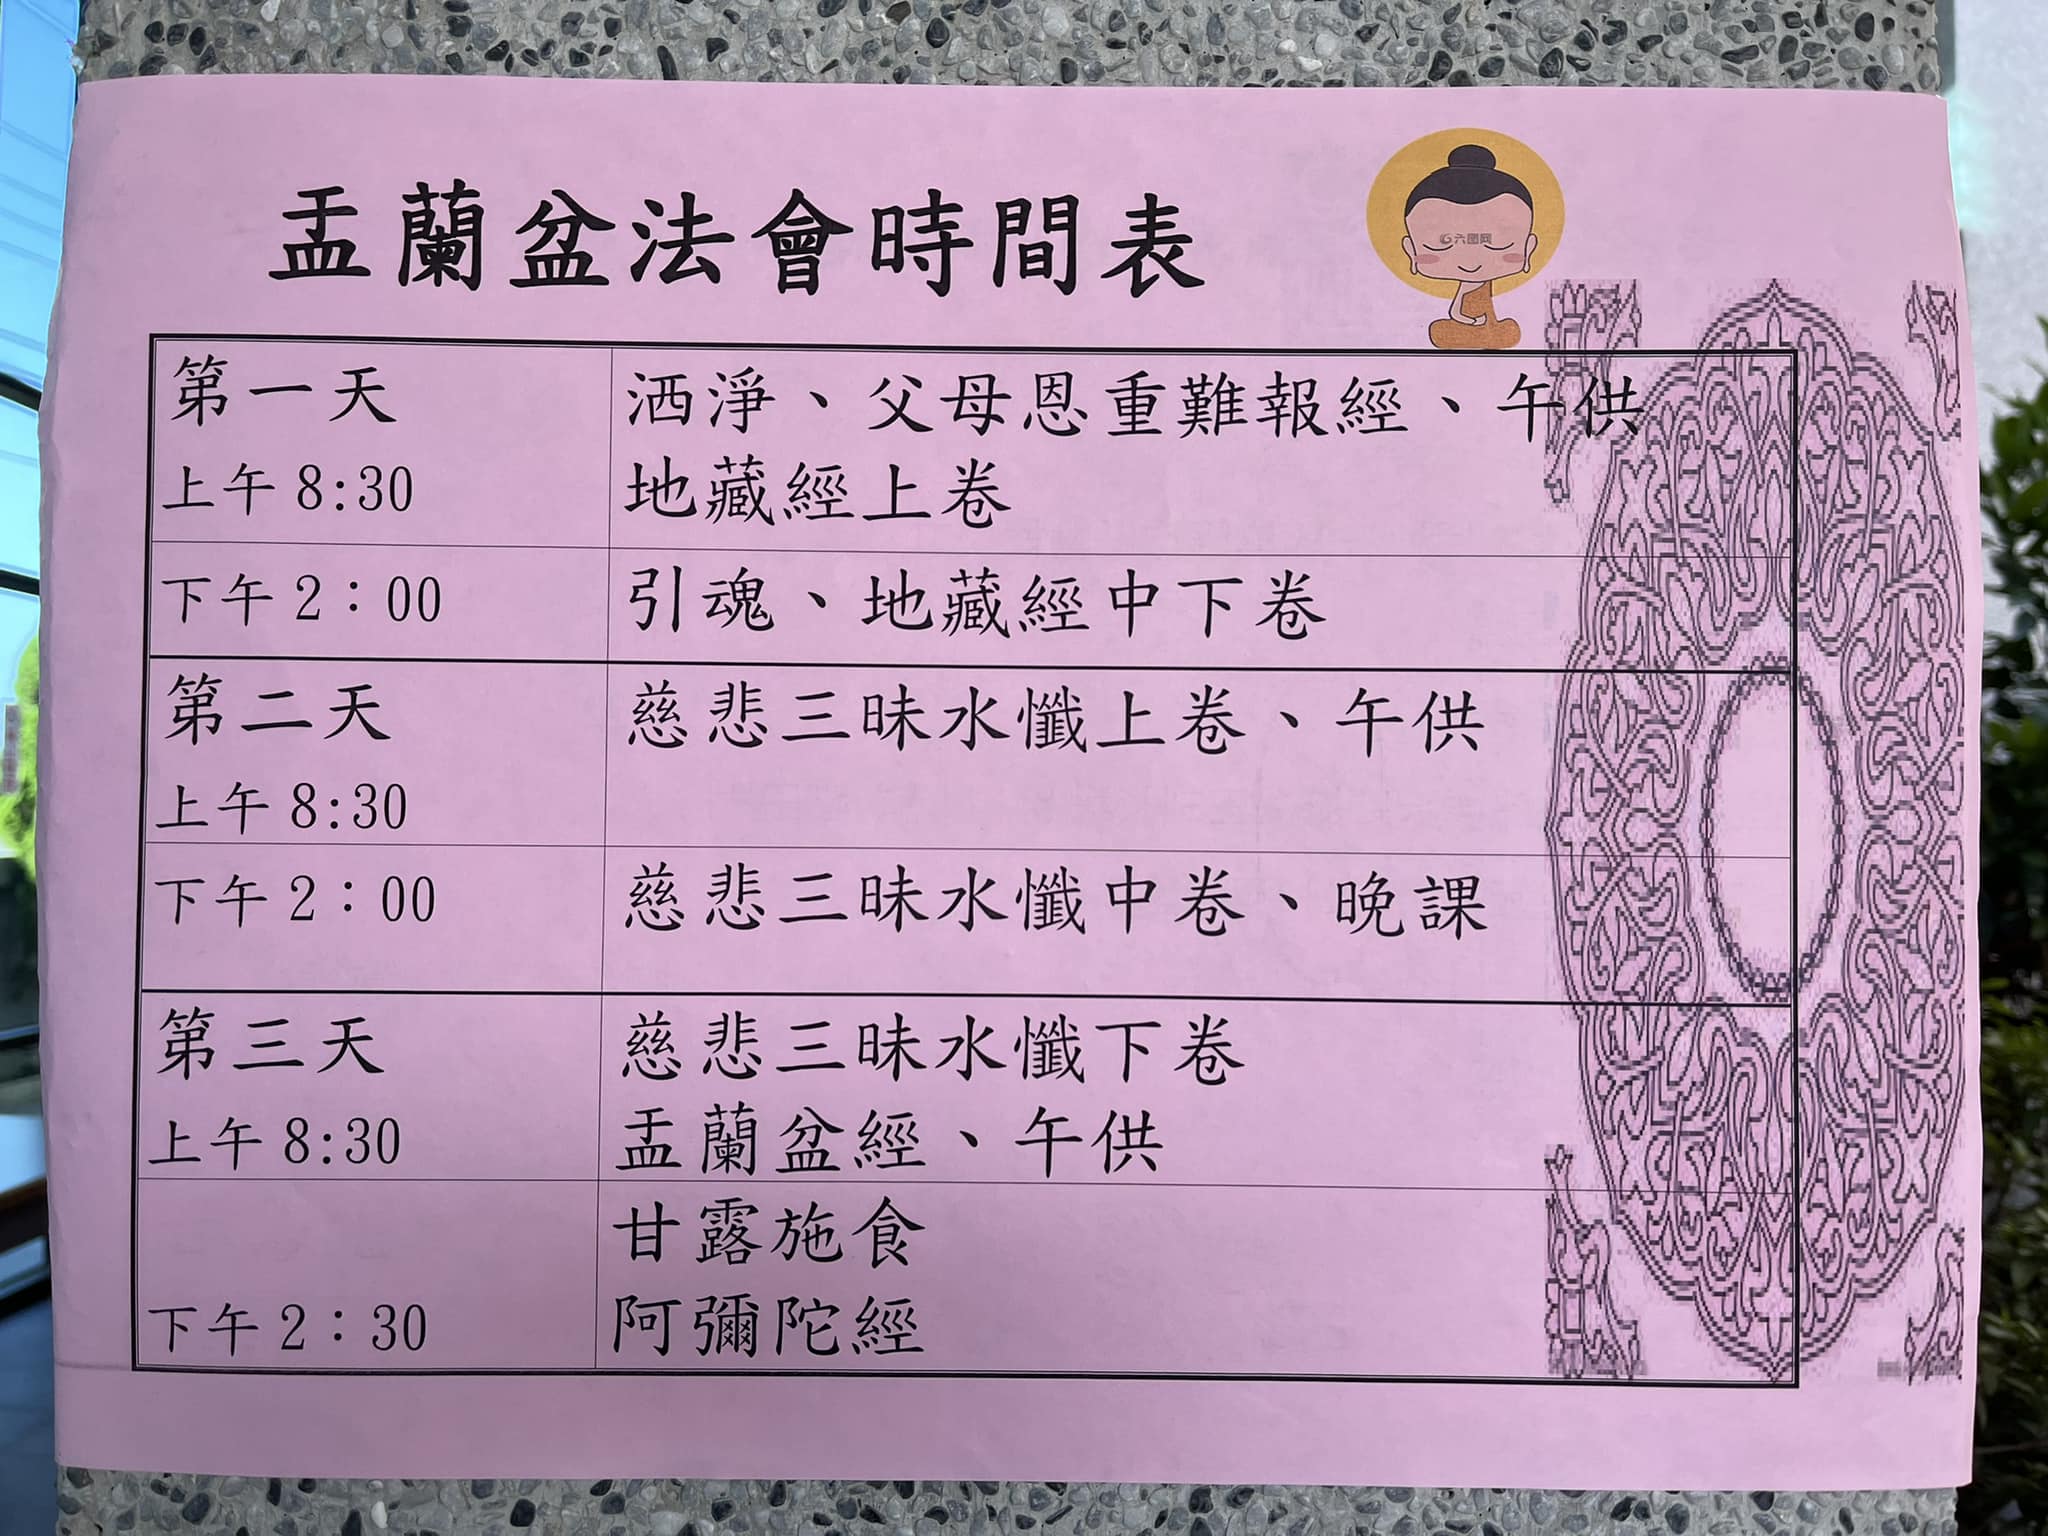 盂蘭盆法會時間表
六图网
第一天
上午8:30
洒淨、父母恩重難報經、午供
地藏經上卷
下午2：00
引魂、地藏經中下卷
第二天
上午8:30
慈悲三昧水懺上卷、午供
下午2：00
慈悲三昧水懺中卷、晚課
第三天
上午8:30
慈悲三昧水懺下卷
盂蘭盆經、午供
下午2：30
甘露施食
阿彌陀經